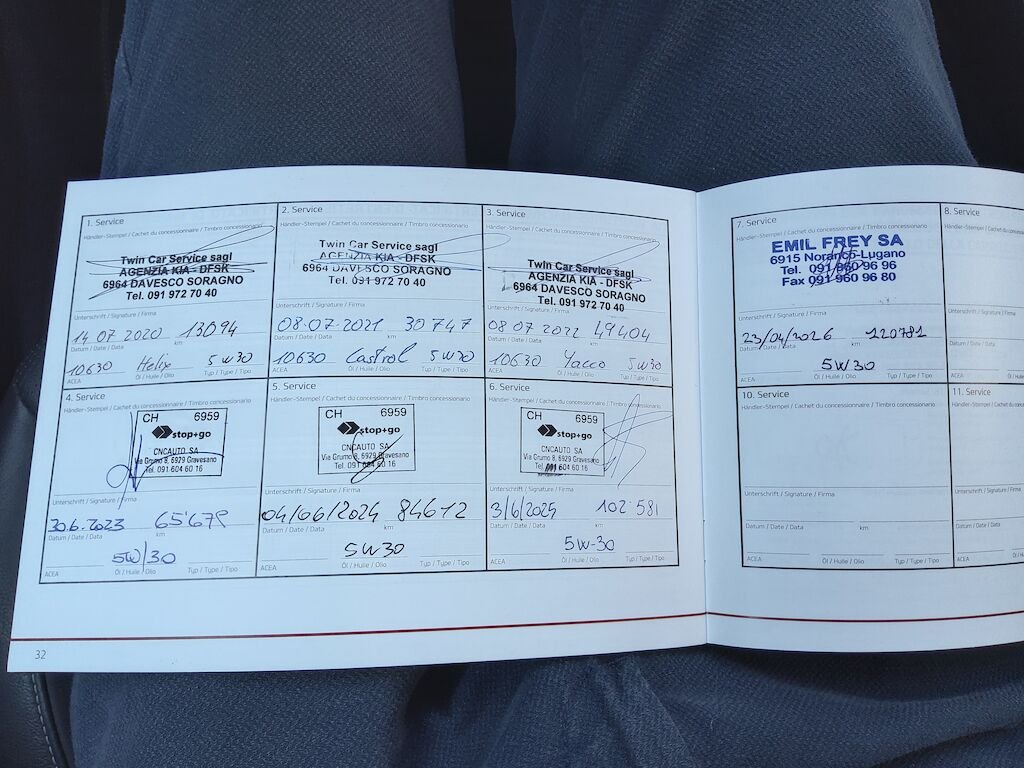 1. Service
Händler-Stempel / Cachet du concessionnaire / Timbro concessionario
Twin Car Service sagl
AGENZIA KIA - DFSK
6964 DAVESCO SORAGNO
Tel. 091 972 70 40
Unterschrift / Signature / Firma
14 07 2020 13094
Datum / Date / Data km
10630 Helix 5W30
ACEA Öl / Huile / Olio Typ / Type / Tipo
2. Service
Händler-Stempel / Cachet du concessionnaire / Timbro concessionario
Twin Car Service sagl
AGENZIA KIA - DFSK
6964 DAVESCO SORAGNO
Tel. 091 972 70 40
Unterschrift / Signature / Firma
08.07.2021 30747
Datum / Date / Data km
10630 Castrol 5W30
ACEA Öl / Huile / Olio Typ / Type / Tipo
3. Service
Händler-Stempel / Cachet du concessionnaire / Timbro concessionario
Twin Car Service sagl
AGENZIA KIA - DFSK
6964 DAVESCO SORAGNO
Tel. 091 972 70 40
Unterschrift / Signature / Firma
08 07 2022 49404
Datum / Date / Data km
10630 Yacco 5W30
ACEA Öl / Huile / Olio Typ / Type / Tipo
4. Service
Händler-Stempel / Cachet du concessionnaire / Timbro concessionario
CH 6959
stop+go
CNCAUTO SA
Via Grumo 8, 6929 Gravesano
Tel. 091 604 60 16
Unterschrift / Signature / Firma
30.6.2023 65'679
Datum / Date / Data km
5W/30
ACEA Öl / Huile / Olio Typ / Type / Tipo
5. Service
Händler-Stempel / Cachet du concessionnaire / Timbro concessionario
CH 6959
stop+go
CNCAUTO SA
Via Grumo 8, 6929 Gravesano
Tel. 091 604 60 16
Unterschrift / Signature / Firma
04/06/2024 84612
Datum / Date / Data km
5W30
ACEA Öl / Huile / Olio Typ / Type / Tipo
6. Service
Händler-Stempel / Cachet du concessionnaire / Timbro concessionario
CH 6959
stop+go
CNCAUTO SA
Via Grumo 8, 6929 Gravesano
Tel. 091 604 60 16
Unterschrift / Signature / Firma
3/6/2025 102'581
Datum / Date / Data km
5W-30
ACEA Öl / Huile / Olio Typ / Type / Tipo
32
7. Service
Händler-Stempel / Cachet du concessionnaire / Timbro concessionario
EMIL FREY SA
6915 Noranco-Lugano
Tel. 091 960 96 96
Fax 091 960 96 80
Unterschrift / Signature / Firma
23/04/2026 120781
Datum / Date / Data km
5W30
ACEA Öl / Huile / Olio Typ / Type / Tipo
8. Service
Händler-Stempel / Cachet du
Unterschrift / Signature / Firma
Datum / Date / Data
ACEA
10. Service
Händler-Stempel / Cachet du concessionnaire / Timbro concessionario
Unterschrift / Signature / Firma
Datum / Date / Data km
ACEA Öl / Huile / Olio Typ / Type / Tipo
11. Service
Händler-Stempel / Cachet du
Unterschrift / Signature / Firma
Datum / Date / Data
ACEA